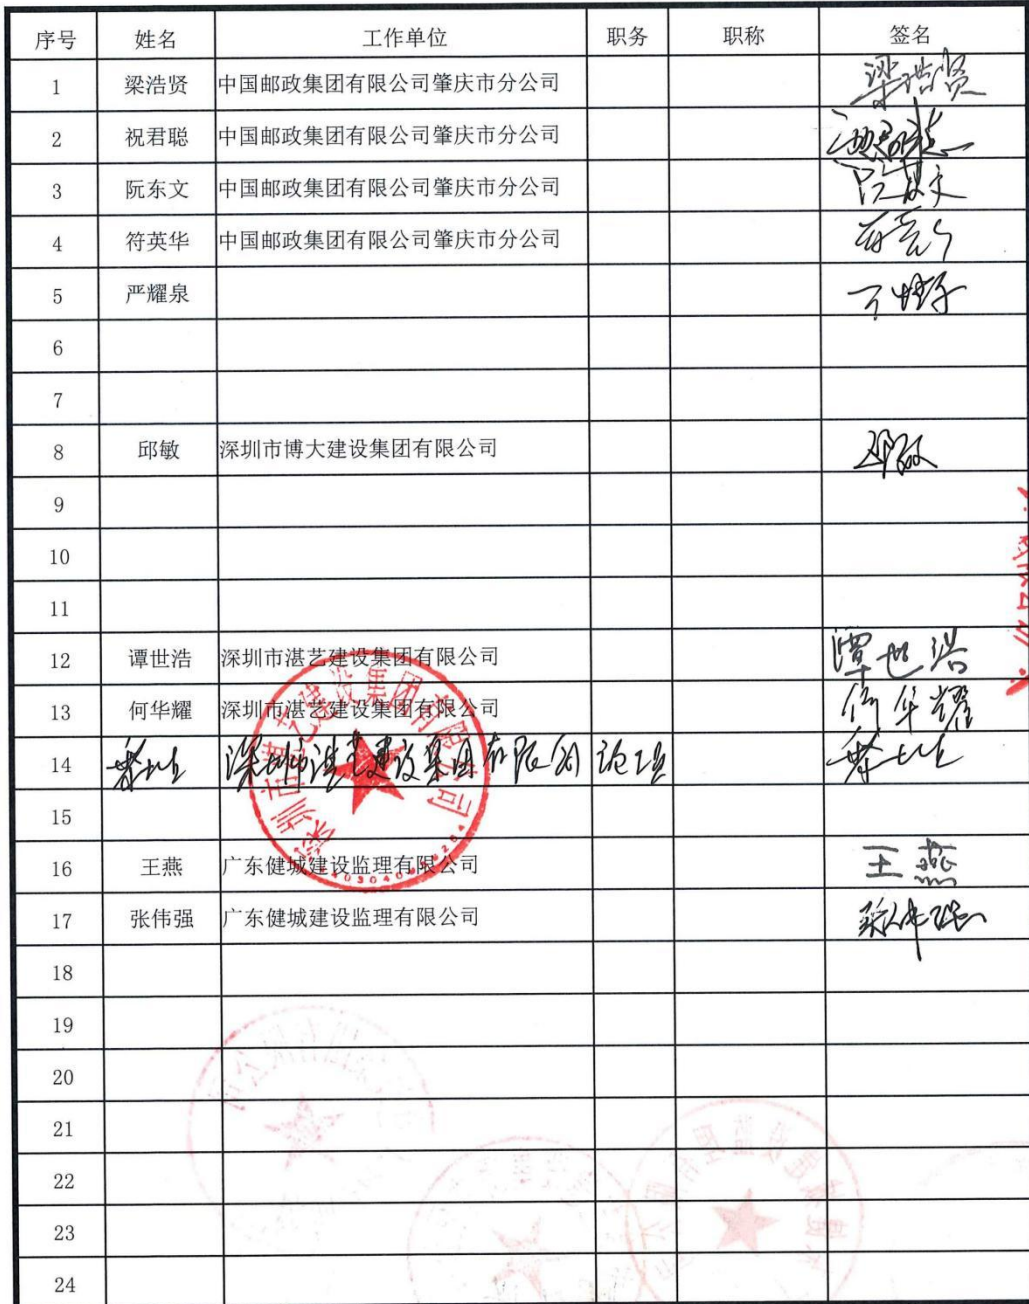 序号 姓名 工作单位 职务 职称 签名
1 梁浩贤 中国邮政集团有限公司肇庆市分公司 梁浩贤
2 祝君聪 中国邮政集团有限公司肇庆市分公司
3 阮东文 中国邮政集团有限公司肇庆市分公司
4 符英华 中国邮政集团有限公司肇庆市分公司
5 严耀泉
6
7
8 邱敏 深圳市博大建设集团有限公司 邱敏
9
10
11
12 谭世浩 深圳市湛艺建设集团有限公司 谭世浩
13 何华耀 深圳市湛艺建设集团有限公司 何华耀
14 深圳市湛艺建设集团有限公司
深圳市湛艺建设集团有限公司
15
16 王燕 广东健城建设监理有限公司 王燕
17 张伟强 广东健城建设监理有限公司 张伟强
18
19
20
21
22
23
24